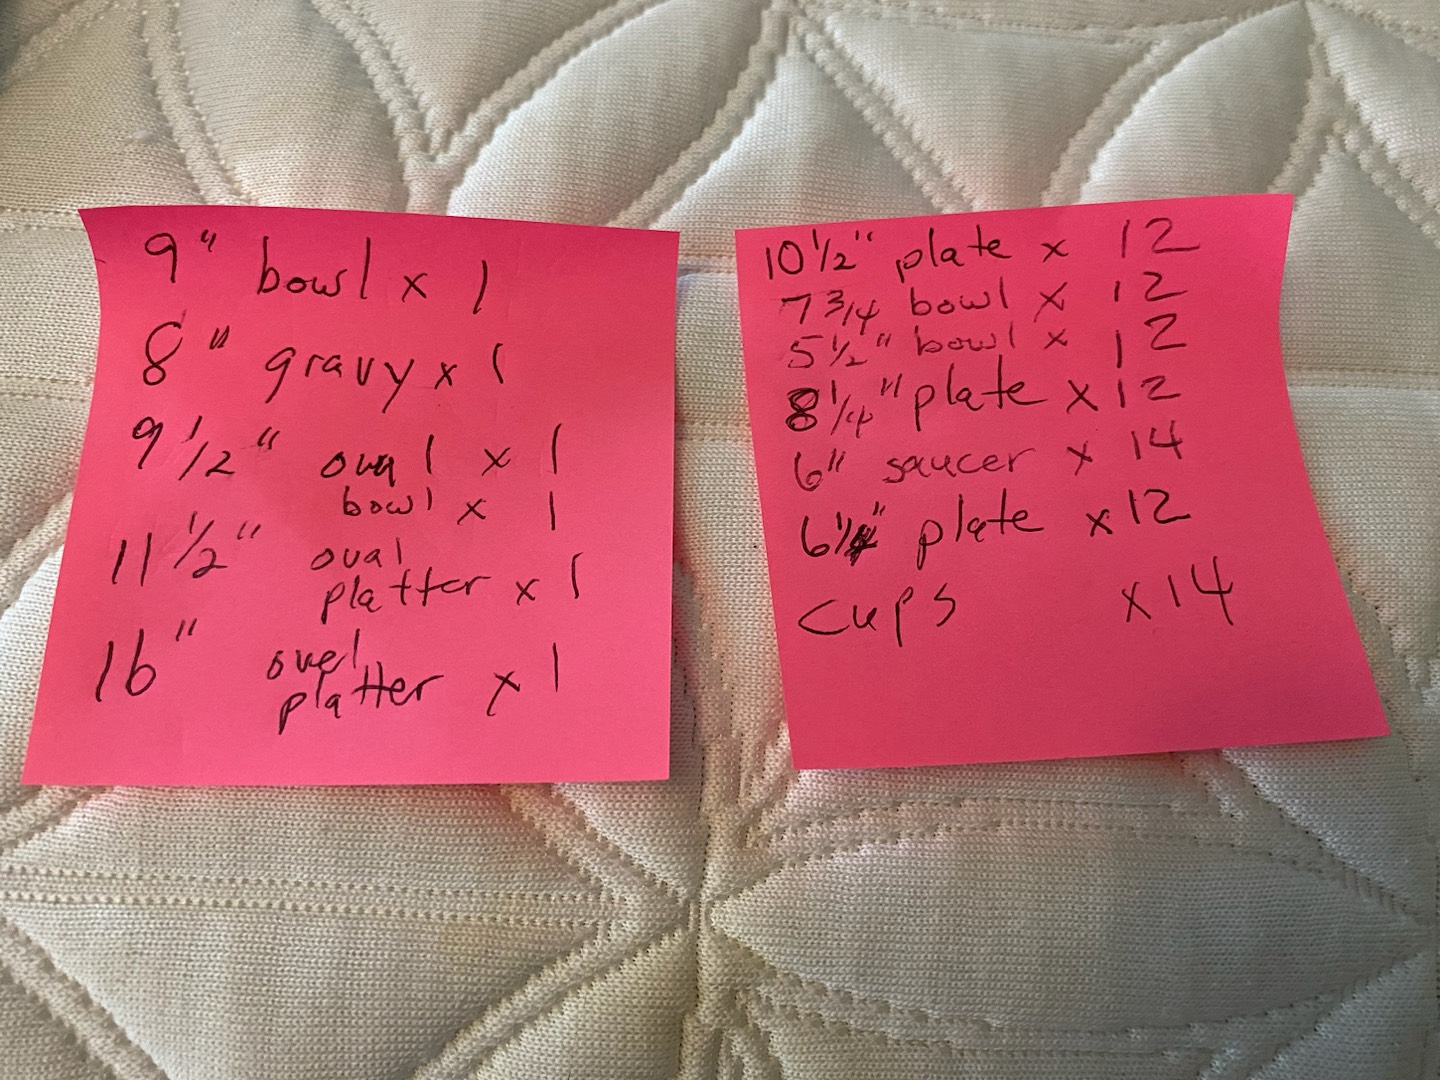 9" bowl x 1
8" gravy x 1
9 1/2" oval x 1
bowl x 1
11 1/2" oval
platter x 1
16" oval
platter x 1
10 1/2" plate x 12
7 3/4 bowl x 12
5 1/2" bowl x 12
8 1/4" plate x 12
6" saucer x 14
6 plate x 12
cups x 14